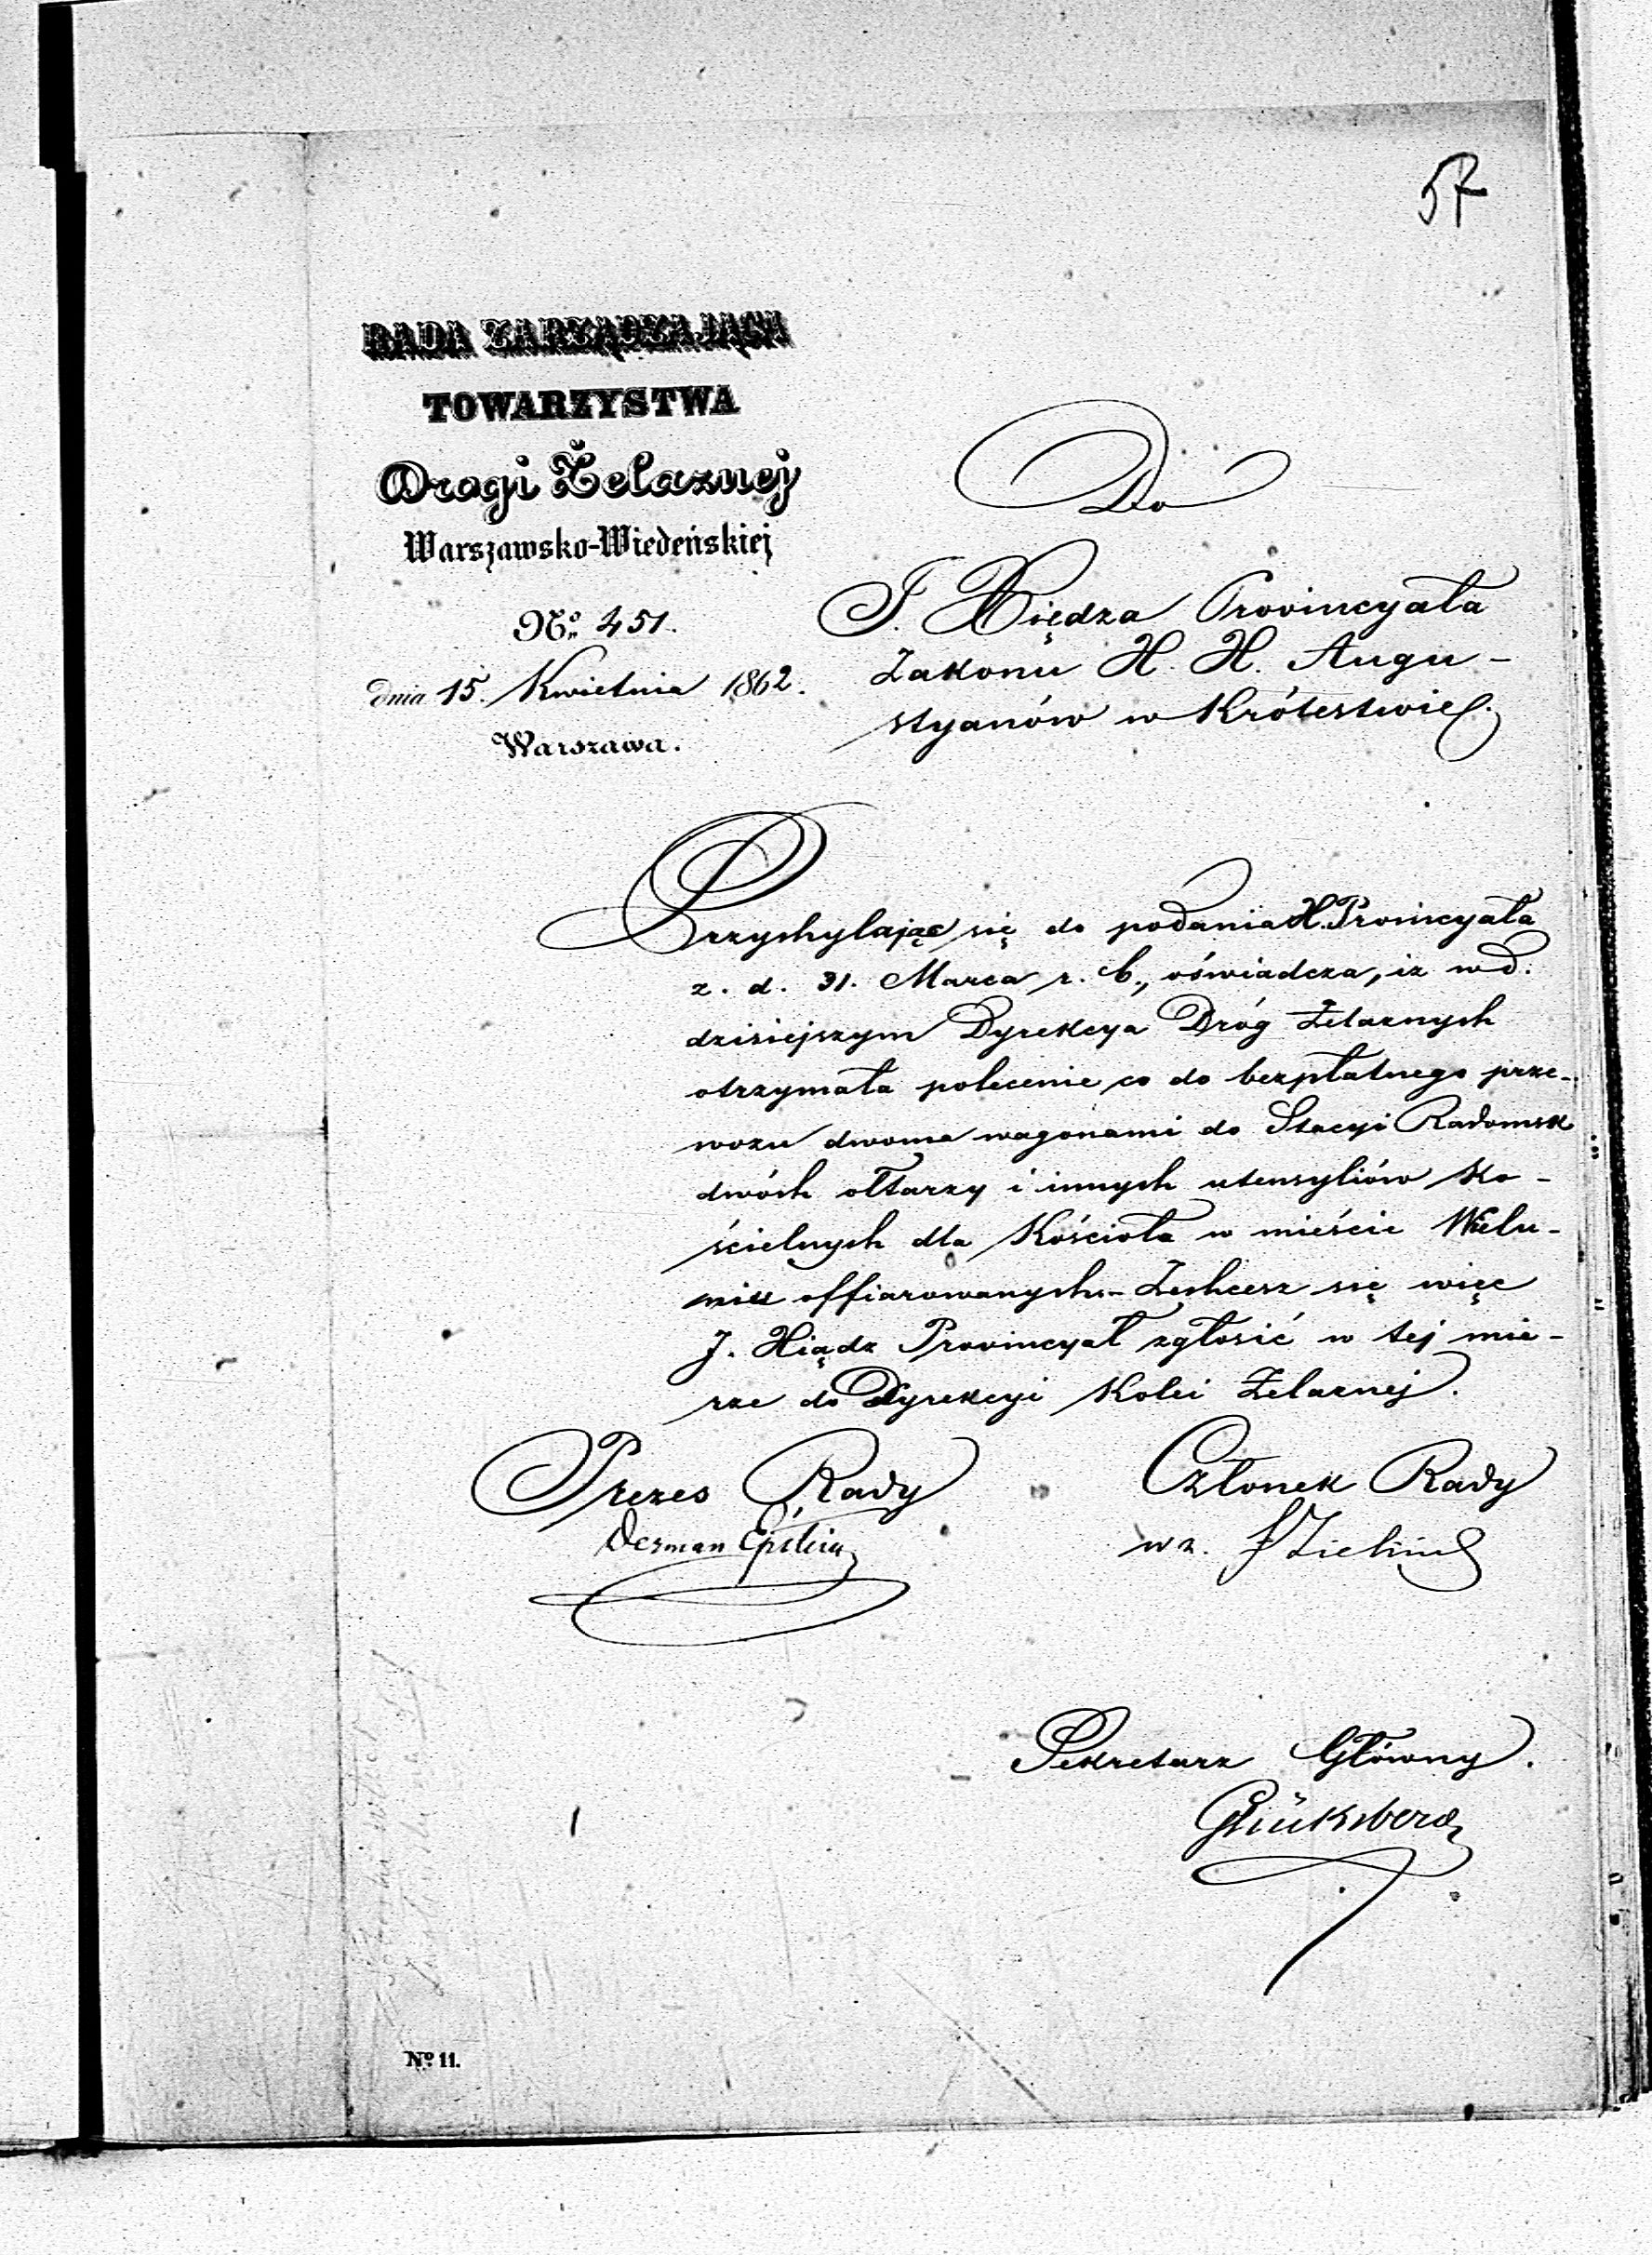 57
RADA ZARZĄDZAJĄCA
TOWARZYSTWA
Drogi Żelaznej
Warszawsko-Wiedeńskiej
No. 451.
dnia 15. Kwietnia 1862.
Warszawa.
Do
J. Xiędza Prowincyała
Zakonu X. X. Augu-
styanów w Królestwie.
Przychylając się do podania X. Prowincyała
z. d. 31. Marca r. b., oświadcza, iż w d.
dzisiejszym Dyrekcya Dróg Żelaznych
otrzymała polecenie co do bezpłatnego prze-
wozu dwoma wagonami do Stacyi Radomsk
dwóch ołtarzy i innych utensyliów Ko-
ścielnych dla Kościoła w mieście Wielu-
niu offiarowanych.- Zechcesz się więc
J. Xiądz Prowincyał zgłosić w tej mie-
rze do Dyrekcyi Kolei Żelaznej.
Prezes Rady
Członek Rady
Herman Epstein
wz.
Sekretarz Główny.
Glüksberg
No 11.